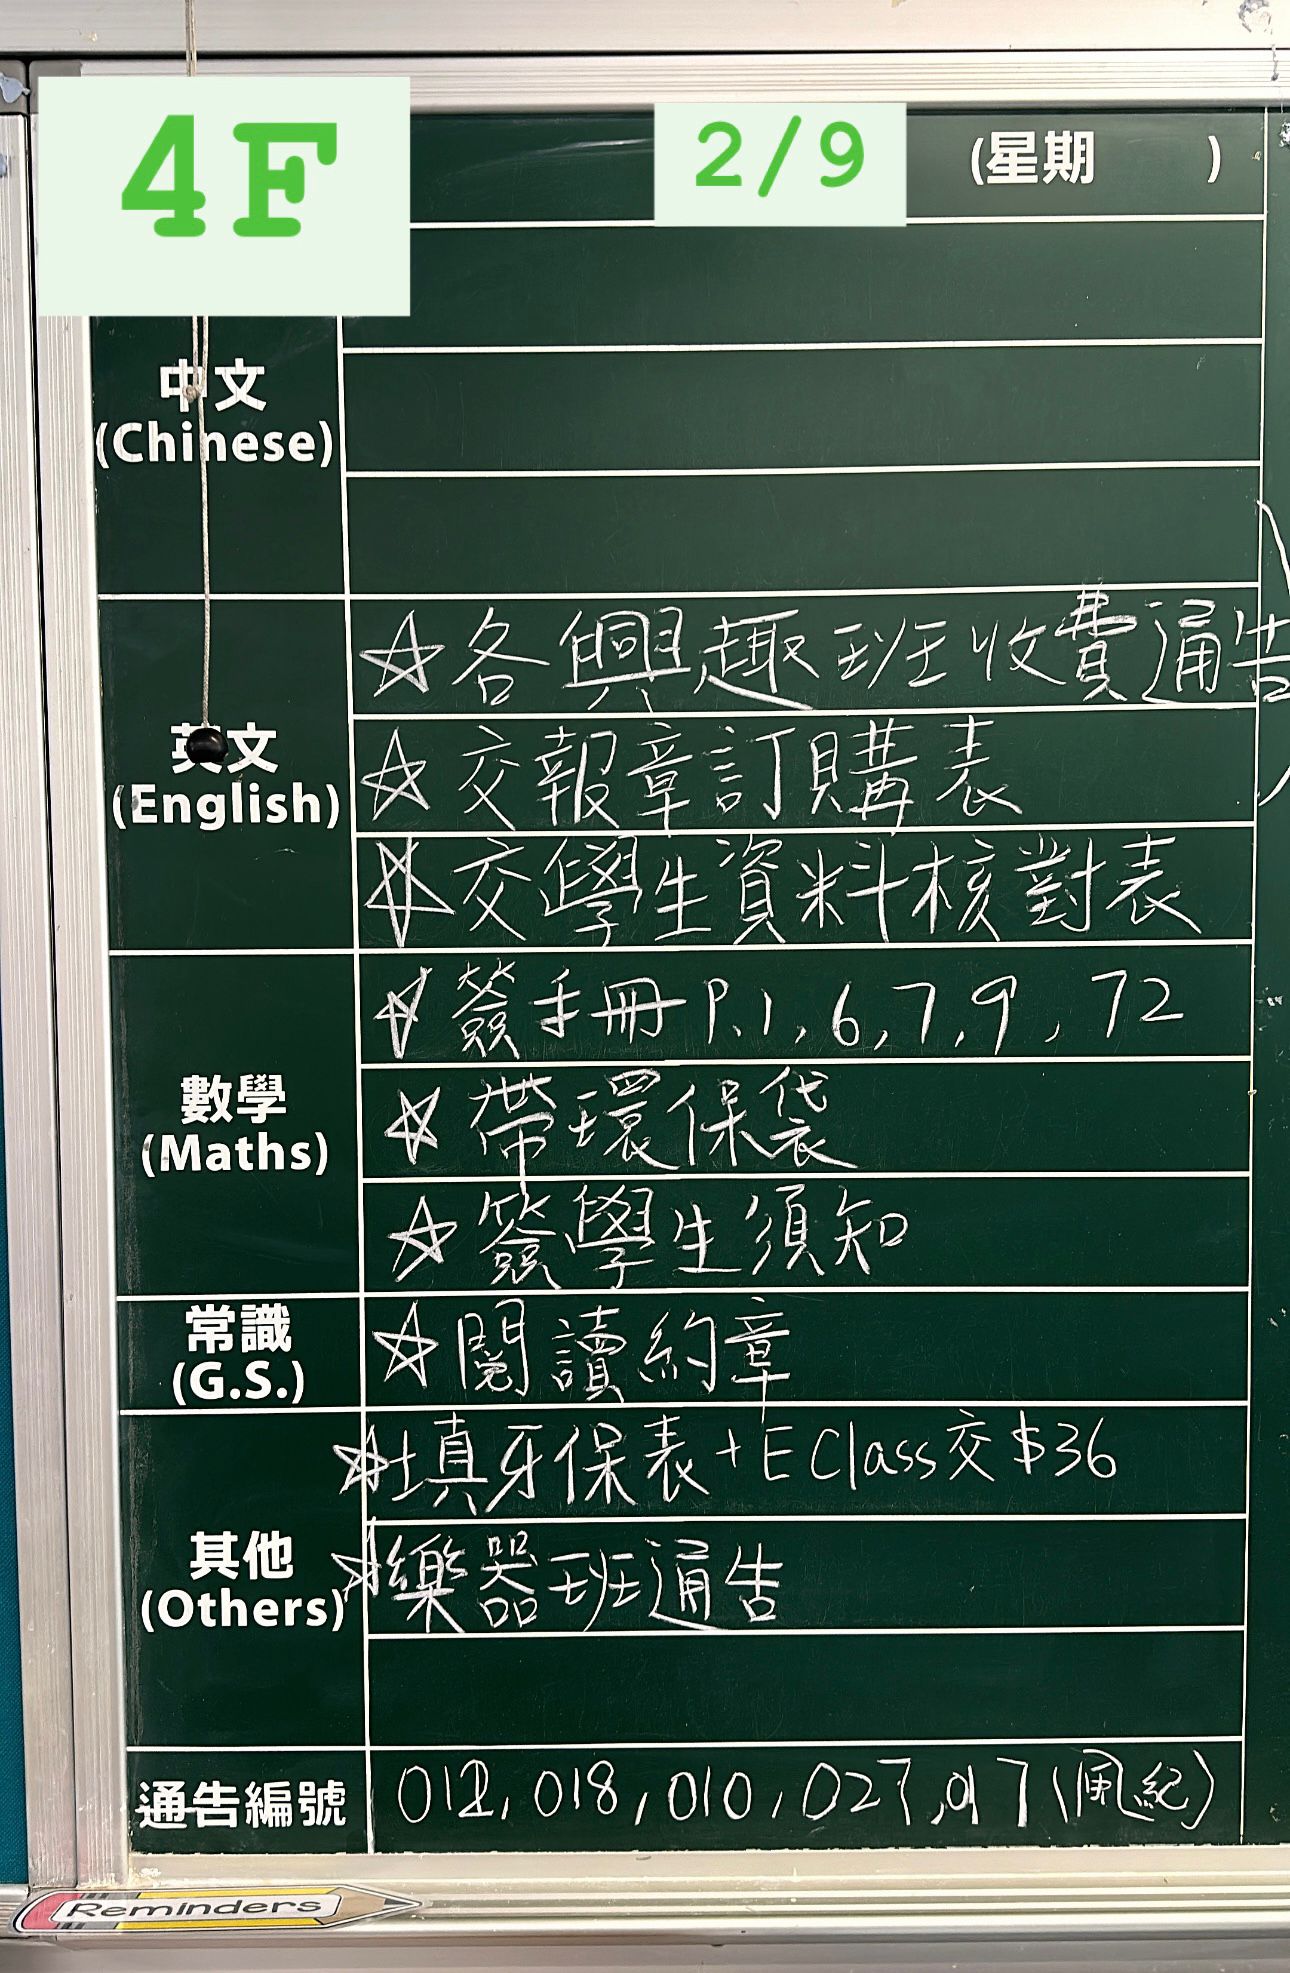 4F
2/9
(星期 )
中文
(Chinese)
☆各興趣班收費通告
英文
(English)
☆交報章訂購表
☆交學生資料核對表
☆簽手冊P.1,6,7,9,72
數學
(Maths)
☆帶環保袋
☆簽學生須知
常識
(G.S.)
☆閱讀約章
☆填牙保表+EClass交$36
其他
(Others)
☆樂器班通告
通告編號
012,018,010,027,017(風紀)
Reminders